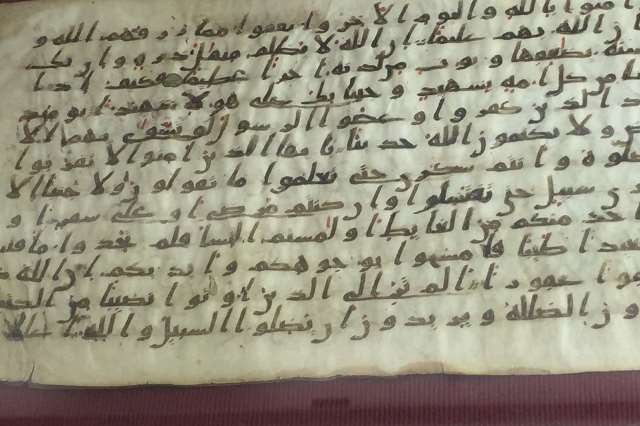 امنوا بالله واليوم الاخر وانفقوا مما رزقهم الله و
ن الله بهم عليما ان الله لا يظلم مثقال ذره وان تك
سنه يضعفها ويوت من لدنه اجرا عظيما فكيف اذا
ا من كل امه بشهيد وجينا بك على هولا شهيدا يوميذ
د الذين كفروا وعصوا الرسول لو تسوى بهم الا
ض ولا يكتمون الله حديثا يايها الذين امنوا لا تقربوا
لصلوه وانتم سكرى حتى تعلموا ما تقولون ولا جنبا الا
ى سبيل حتى تغتسلوا وان كنتم مرضى او على سفر او
ا احد منكم من الغايط او لمستم النسا فلم تجدوا ما فتيمموا
صعيدا طيبا فامسحوا بوجوهكم وايديكم ان الله كا
عفوا غفورا الم تر الى الذين اوتوا نصيبا من الكتب
ون الضلله ويريدون ان تضلوا السبيل والله اعلم